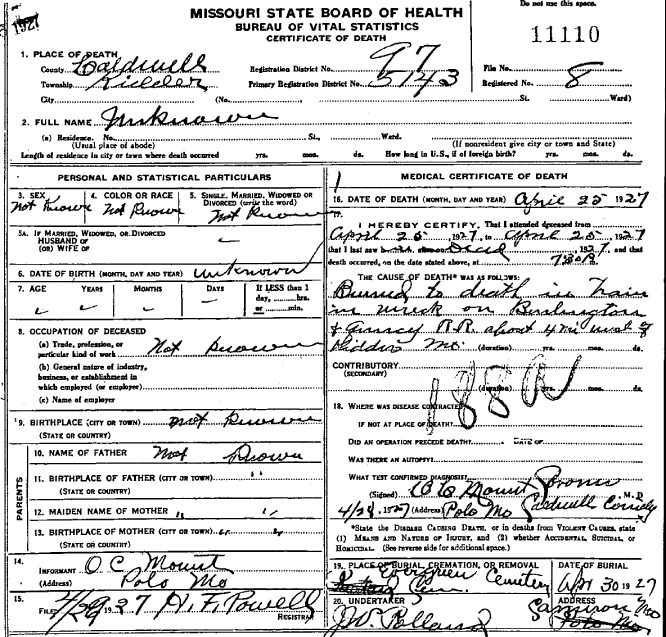 Do not use this space.
MISSOURI STATE BOARD OF HEALTH
BUREAU OF VITAL STATISTICS
CERTIFICATE OF DEATH
1927
11110
1. PLACE OF DEATH
County Caldwell Registration District No. 97 File No.
Township Kidder Primary Registration District No. 5143 Registered No. 8
City (No. St. Ward)
2. FULL NAME Unknown
(a) Residence. No. St., Ward.
(Usual place of abode) (If nonresident give city or town and State)
Length of residence in city or town where death occurred yrs. mos. ds. How long in U.S., if of foreign birth? yrs. mos. ds.
PERSONAL AND STATISTICAL PARTICULARS
3. SEX 4. COLOR OR RACE 5. SINGLE, MARRIED, WIDOWED OR DIVORCED (write the word)
Not Known Not Known Not Known
5A. IF MARRIED, WIDOWED, OR DIVORCED
HUSBAND OF
(OR) WIFE OF
6. DATE OF BIRTH (MONTH, DAY AND YEAR) Unknown
7. AGE YEARS MONTHS DAYS If LESS than 1 day, hrs. or min.
8. OCCUPATION OF DECEASED
(a) Trade, profession, or particular kind of work Not Known
(b) General nature of industry, business, or establishment in which employed (or employer)
(c) Name of employer
9. BIRTHPLACE (CITY OR TOWN) Not Known
(STATE OR COUNTRY)
PARENTS
10. NAME OF FATHER Not Known
11. BIRTHPLACE OF FATHER (CITY OR TOWN) " "
(STATE OR COUNTRY)
12. MAIDEN NAME OF MOTHER " "
13. BIRTHPLACE OF MOTHER (CITY OR TOWN) " "
(STATE OR COUNTRY)
14. INFORMANT O C Mount
(Address) Polo Mo
15. FILED 4/29 1927 H. F. Powell
REGISTRAR
MEDICAL CERTIFICATE OF DEATH
16. DATE OF DEATH (MONTH, DAY AND YEAR) April 25 1927
17.
I HEREBY CERTIFY, That I attended deceased from
April 25, 1927, to April 25, 1927
that I last saw Dead, 1927, and that
death occurred, on the date stated above, at 730P.
THE CAUSE OF DEATH* WAS AS FOLLOWS:
Burned to death in Train
in wreck on Burlington
& Quincy R.R. about 4 mi west of
Kidder Mo. (duration) yrs. mos. ds.
CONTRIBUTORY
(SECONDARY)
(duration) yrs. mos. ds.
188A
18. WHERE WAS DISEASE CONTRACTED
IF NOT AT PLACE OF DEATH?
DID AN OPERATION PRECEDE DEATH? DATE OF
WAS THERE AN AUTOPSY?
WHAT TEST CONFIRMED DIAGNOSIS?
(Signed) O C Mount Coroner, M. D.
4/28, 1927 (Address) Polo Mo Caldwell County
*State the DISEASE CAUSING DEATH, or in deaths from VIOLENT CAUSES, state
(1) MEANS AND NATURE OF INJURY, and (2) whether ACCIDENTAL, SUICIDAL, or
HOMICIDAL. (See reverse side for additional space.)
19. PLACE OF BURIAL, CREMATION, OR REMOVAL DATE OF BURIAL
Evergreen Cemetery Apr 30 1927
20. UNDERTAKER ADDRESS
Cameron Mo